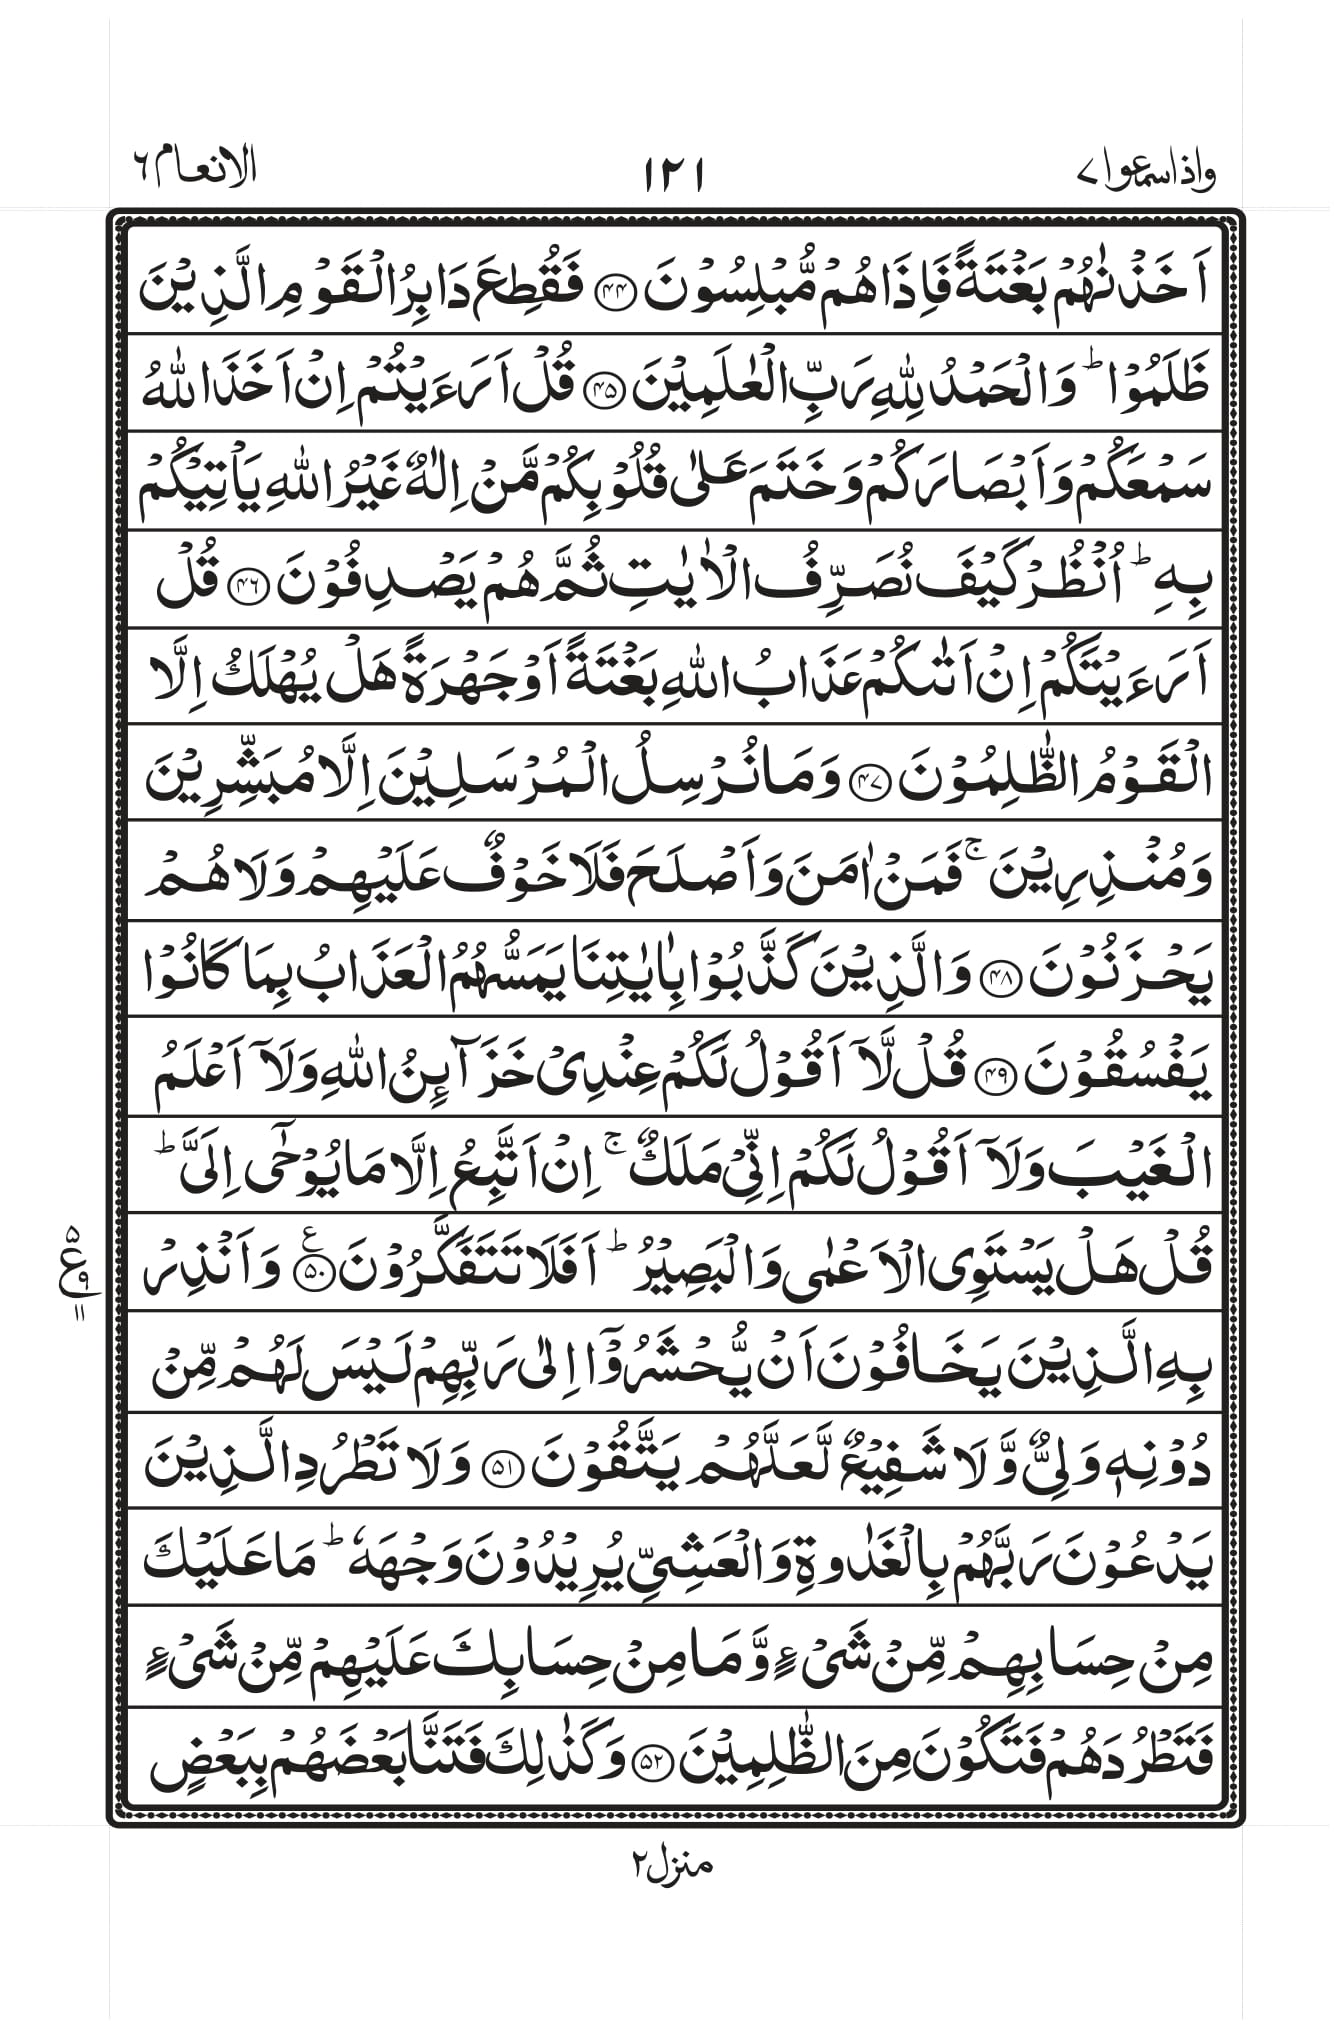 واذاسمعوا ٧
١٢١
الانعام ٦
اَخَذْنٰهُمْ بَغْتَةً فَاِذَا هُمْ مُّبْلِسُوْنَ ۝۴۴ فَقُطِعَ دَابِرُ الْقَوْمِ الَّذِيْنَ
ظَلَمُوْا ؕ وَالْحَمْدُ لِلّٰهِ رَبِّ الْعٰلَمِيْنَ ۝۴۵ قُلْ اَرَءَيْتُمْ اِنْ اَخَذَ اللّٰهُ
سَمْعَكُمْ وَاَبْصَارَكُمْ وَخَتَمَ عَلٰى قُلُوْبِكُمْ مَّنْ اِلٰهٌ غَيْرُ اللّٰهِ يَاْتِيْكُمْ
بِهِ ؕ اُنْظُرْ كَيْفَ نُصَرِّفُ الْاٰيٰتِ ثُمَّ هُمْ يَصْدِفُوْنَ ۝۴۶ قُلْ
اَرَءَيْتَكُمْ اِنْ اَتٰىكُمْ عَذَابُ اللّٰهِ بَغْتَةً اَوْ جَهْرَةً هَلْ يُهْلَكُ اِلَّا
الْقَوْمُ الظّٰلِمُوْنَ ۝۴۷ وَمَا نُرْسِلُ الْمُرْسَلِيْنَ اِلَّا مُبَشِّرِيْنَ
وَمُنْذِرِيْنَ ۚ فَمَنْ اٰمَنَ وَاَصْلَحَ فَلَا خَوْفٌ عَلَيْهِمْ وَلَا هُمْ
يَحْزَنُوْنَ ۝۴۸ وَالَّذِيْنَ كَذَّبُوْا بِاٰيٰتِنَا يَمَسُّهُمُ الْعَذَابُ بِمَا كَانُوْا
يَفْسُقُوْنَ ۝۴۹ قُلْ لَّاۤ اَقُوْلُ لَكُمْ عِنْدِىْ خَزَآئِنُ اللّٰهِ وَلَاۤ اَعْلَمُ
الْغَيْبَ وَلَاۤ اَقُوْلُ لَكُمْ اِنِّىْ مَلَكٌ ۚ اِنْ اَتَّبِعُ اِلَّا مَا يُوْحٰۤى اِلَىَّ ؕ
قُلْ هَلْ يَسْتَوِى الْاَعْمٰى وَالْبَصِيْرُ ؕ اَفَلَا تَتَفَكَّرُوْنَ ۝۵۰ ع وَاَنْذِرْ
۵
ع
۹
۱۱
بِهِ الَّذِيْنَ يَخَافُوْنَ اَنْ يُّحْشَرُوْۤا اِلٰى رَبِّهِمْ لَيْسَ لَهُمْ مِّنْ
دُوْنِهٖ وَلِىٌّ وَّلَا شَفِيْعٌ لَّعَلَّهُمْ يَتَّقُوْنَ ۝۵۱ وَلَا تَطْرُدِ الَّذِيْنَ
يَدْعُوْنَ رَبَّهُمْ بِالْغَدٰوةِ وَالْعَشِىِّ يُرِيْدُوْنَ وَجْهَهٗ ؕ مَا عَلَيْكَ
مِنْ حِسَابِهِمْ مِّنْ شَىْءٍ وَّمَا مِنْ حِسَابِكَ عَلَيْهِمْ مِّنْ شَىْءٍ
فَتَطْرُدَهُمْ فَتَكُوْنَ مِنَ الظّٰلِمِيْنَ ۝۵۲ وَكَذٰلِكَ فَتَنَّا بَعْضَهُمْ بِبَعْضٍ
منزل ٢